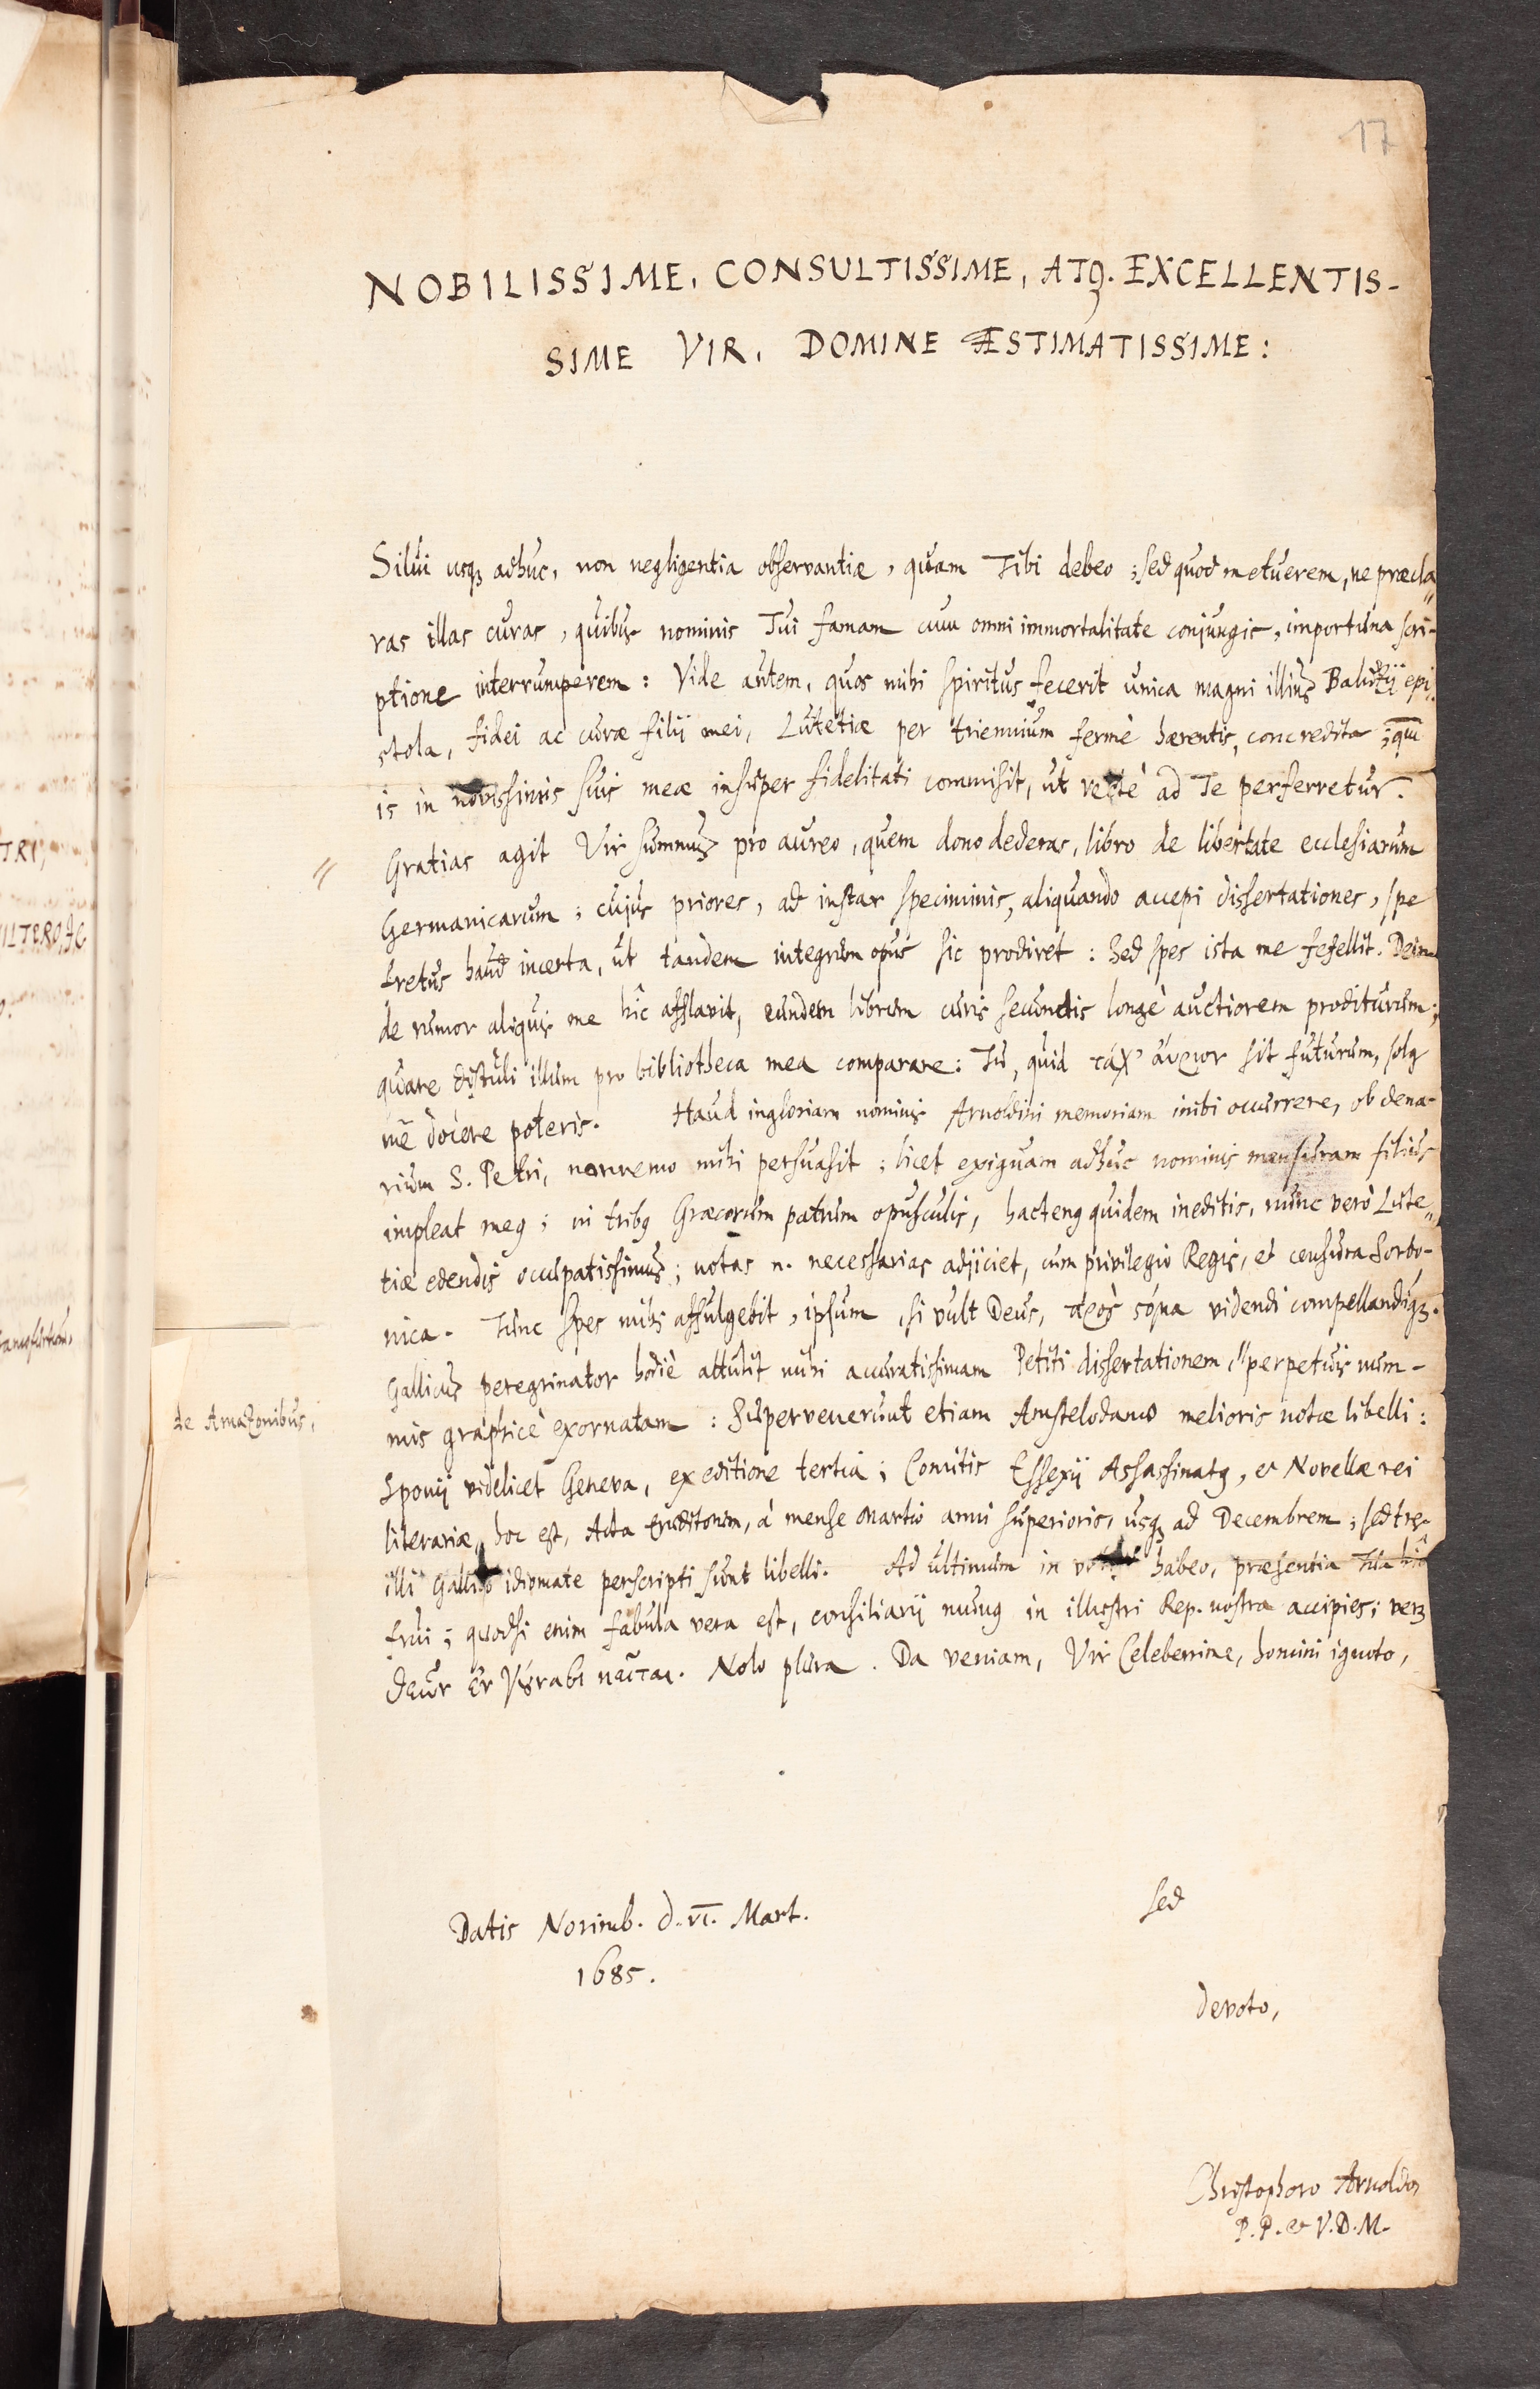 17
NOBILISSIME, CONSULTISSIME, ATQ. EXCELLENTIS-
SIME VIR, DOMINE ÆSTIMATISSIME:
Silui usq; adhuc, non negligentia observantiæ, quam Tibi debeo; sed quod metuerem, ne præcla„
ras illas curas, quibus nominis Tui famam cum omni immortalitate conjungis, importuna scri-
ptione interrumperem: Vide autem, quos mihi spiritus fecerit unica magni illius Baluzij epi-
stola, fidei ac curæ filij mei, Lutetiæ per triennium fermè hærentis, concredita;
is in novissimis suis meæ insuper fidelitati commisit, ut rectè ad Te perferretur.
Gratias agit Vir summus pro aureo, quem dono dederas, libro de libertate ecclesiarum
Germanicarum; cujus priores, ad instar speciminis, aliquando accepi dissertationes, spe
fretus haud incerta, ut tandem integrum opus sic prodiret: Sed spes ista me fefellit. Dein-
de rumor aliquis me hîc afflavit, eundem librum curis secundis longè auctiorem proditurum;
quare distuli illum pro bibliotheca mea comparare: Tu, quid τάχ' αὔριον sit futurum, solus
me docere poteris. Haud ingloriam nominis Arnoldini memoriam inibi occurrere, ob dena-
rium S. Petri, nonnemo mihi persuasit; licet exiguam adhuc nominis mensuram filius
impleat meus; in tribus Græcorum patrum opusculis, hactenus quidem ineditis, nunc verò Lute„
tiæ edendis occupatissimus; notas n. necessarias adjiciet, cum privilegio Regis, et censura Sorbo-
nica. Tunc spes mihi affulgebit, ipsum, si vult Deus, πρὸς στόμα videndi compellandiq;.
Gallicus peregrinator hodiè attulit mihi accuratissimam Petiti dissertationem, " perpetuis num-
de Amazonibus,
mis graphicè exornatam: Supervenerunt etiam Amstelodamo melioris notæ libelli:
Sponij videlicet Geneva, ex editione tertia; Comitis Essexij Assassinatus, et Novellæ rei
literariæ, hoc est, Acta Eruditorum, à mense Martio anni superioris, usq; ad Decembrem; sed tres
illi Gallico idiomate perscripti sunt libelli. Ad ultimum in votis habeo, præsentia Tua hîc
frui; quodsi enim fabula vera est, consiliarij munus in illustri Rep. nostra accipies;
θεῶν ἐν γούνασι κεῖται. Nolo plura. Da veniam, Vir Celeberrime, homini ignoto,
sed
Datis Norimb. d. VI. Mart.
1685.
devoto,
Christophoro Arnoldo,
P.P. & V.D.M.